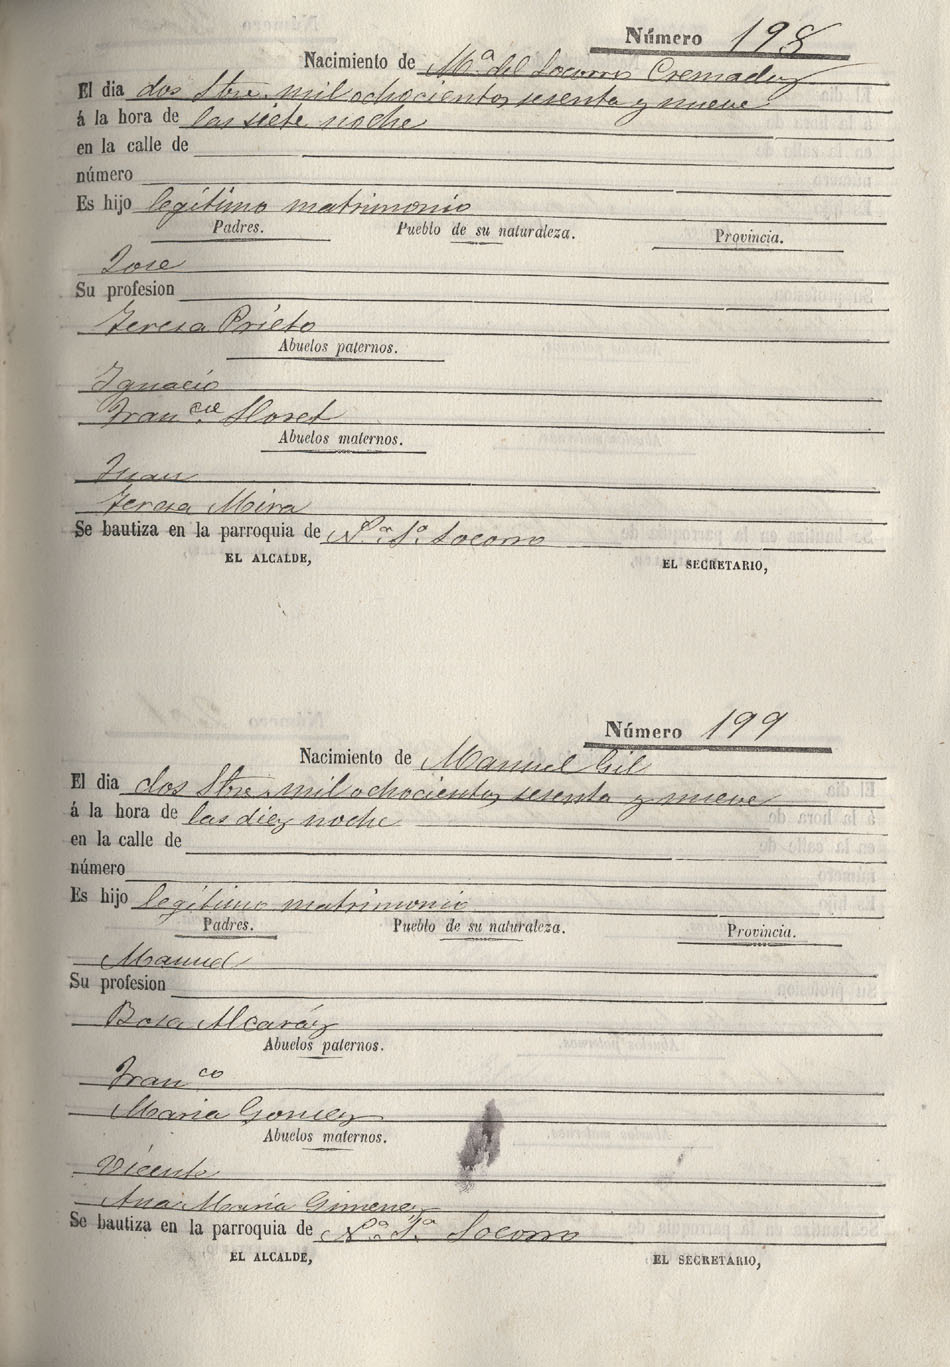 Número 198
Nacimiento de Mª del Socorro Cremades
El dia dos Stre. mil ochocientos sesenta y nueve
á la hora de las siete noche
en la calle de
número
Es hijo legítimo matrimonio
Padres. Pueblo de su naturaleza. Provincia.
Jose
Su profesion
Teresa Prieto
Abuelos paternos.
Ignacio
Fran.ca Lloret
Abuelos maternos.
Juan
Teresa Mira
Se bautiza en la parroquia de Nª. Sª. Socorro
EL ALCALDE, EL SECRETARIO,
Número 199
Nacimiento de Manuel Gil
El dia dos Stre. mil ochocientos sesenta y nueve
á la hora de las diez noche
en la calle de
número
Es hijo legítimo matrimonio
Padres. Pueblo de su naturaleza. Provincia.
Manuel
Su profesion
Rosa Alcaráz
Abuelos paternos.
Franco
Maria Gomez
Abuelos maternos.
Vicente
Ana Maria Gimenez
Se bautiza en la parroquia de Nª. Sª. Socorro
EL ALCALDE, EL SECRETARIO,